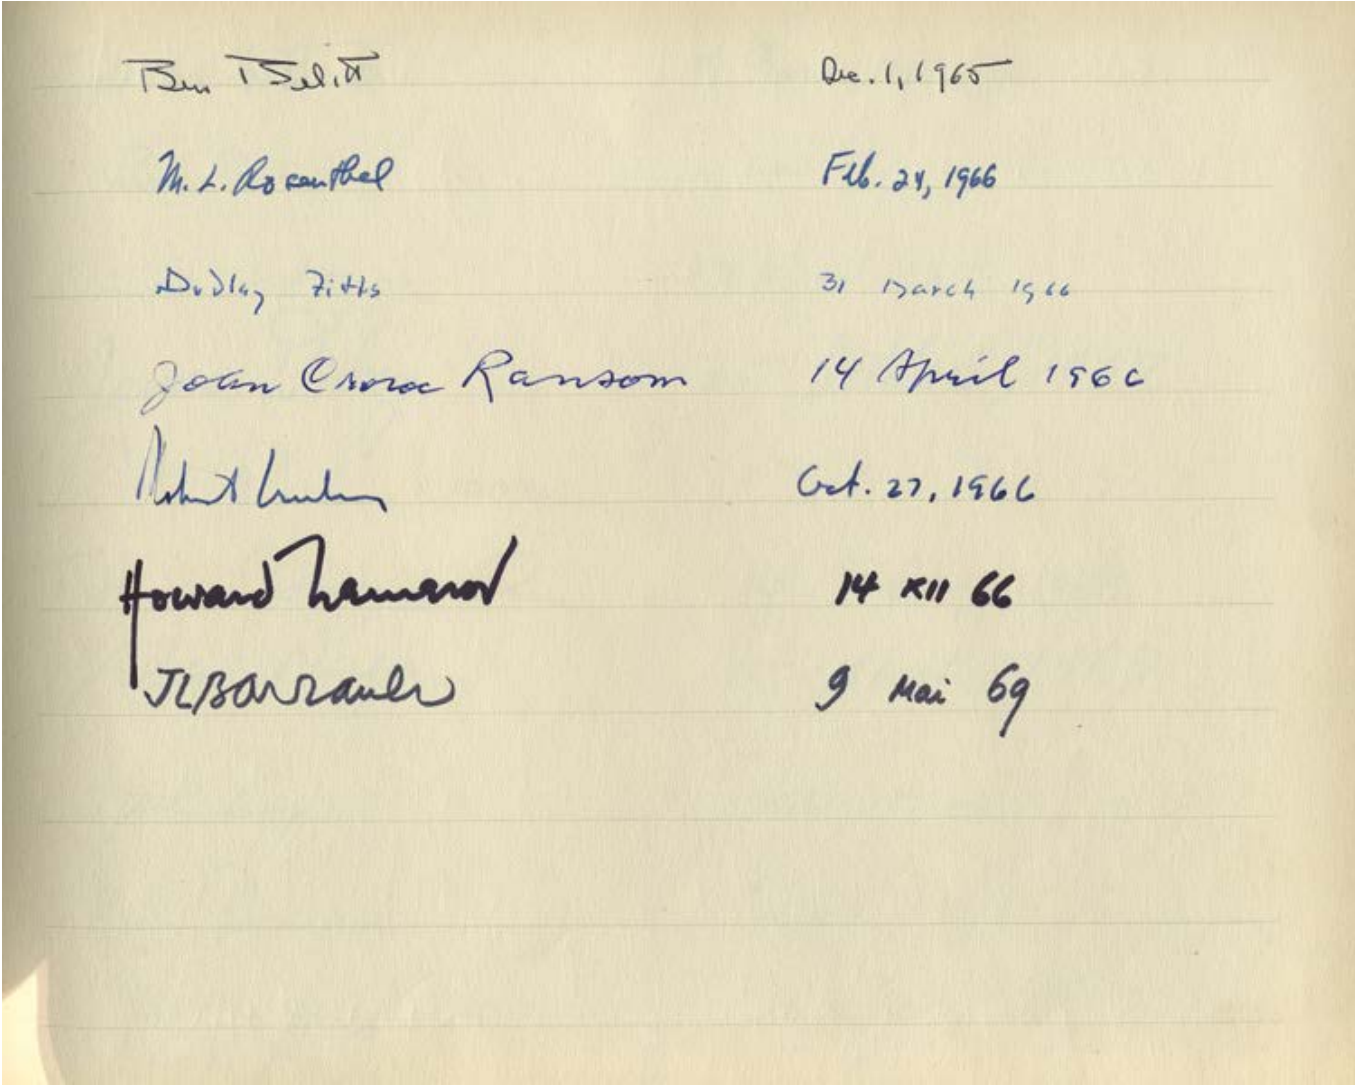 Ben Belitt Dec. 1, 1965
M. L. Rosenthal Feb. 24, 1966
Dudley Fitts 31 March 1966
John Crowe Ransom 14 April 1966
Robert Oct. 27, 1966
Howard Nemerov 14 XII 66
JLBarrault 9 Mai 69